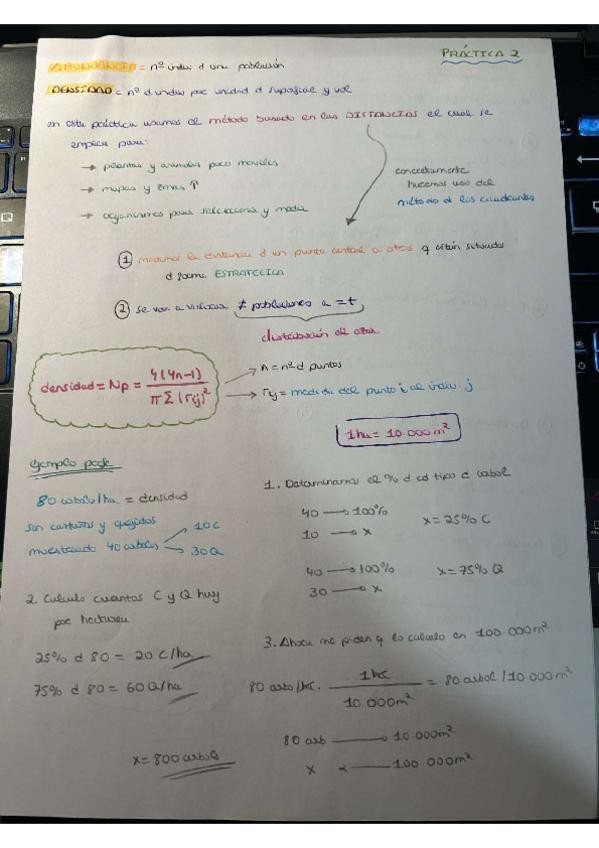 PRÁCTICA 2
ABUNDANCIA = nº indiv d una población
DENSIDAD = nº d indiv por unidad d superficie y vol
en esta práctica usamos el método basado en las DISTANCIAS el cual se
emplea para:
→ plantas y animales poco moviles
→ mapas y zonas ↑
→ organismos para seleccionar y medir
concretamente
hacemos uso del
método d los cuadrantes
① medimos la distancia d un punto central a otros q están situados
d forma ESTRATÉGICA
② se van a visitar ≠ poblaciones a = t
distribución al azar
densidad = Np = 4(4n-1) / π Σ (rij)²
→ n = nº d puntos
→ rij = medida del punto i al indiv. j
1ha = 10.000m²
ejemplo profe
80 arbole/ha = densidad
son castaños y quejidos
muestreando 40 arboles → 10C
→ 30Q
1. Determinamos el % d cd tipo d arbol
40 → 100%
10 → x
x = 25% C
40 → 100%
30 → x
x = 75% Q
2. Calculo cuantos C y Q hay
por hectarea
25% d 80 = 20 C/ha
75% d 80 = 60 Q/ha
3. Ahora me piden q lo calcule en 100.000m²
80 arbo/ha · 1ha / 10.000m² = 80 arbol / 10.000m²
80 arb → 10.000m²
x ← 100.000m²
x = 800 arbols